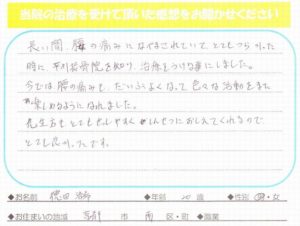 当院の治療を受けて頂いた感想をお聞かせください
長い間、腰の痛みになやまされていて、とてもつらかった
時に、 整骨院を知り、治療をうける事にしました。
今では腰の痛みも、だいぶよくなって、色々な活動をまた
楽しめるようになれました。
先生方もとても しやすく、しんせつにおしえてくれるので
とても良かったです。
◆お名前 徳田 ◆年齢 20 歳 ◆性別 男・女
◆お住まいの地域 京都 市 南 区・町 ◆職業